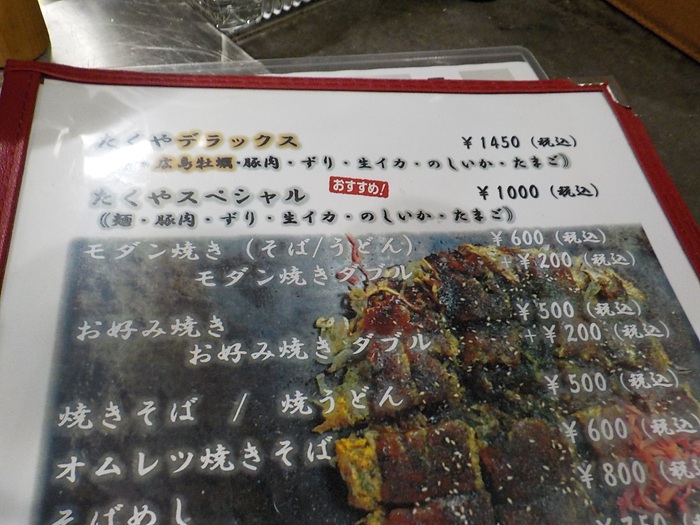 たくやデラックス ¥1450 (税込)
・広島牡蠣・豚肉・ずり・生イカ・のしいか・たまご》
たくやスペシャル おすすめ! ¥1000 (税込)
《麺・豚肉・ずり・生イカ・のしいか・たまご》
モダン焼き (そば/うどん) ¥600 (税込)
モダン焼きダブル +¥200 (税込)
お好み焼き ¥500 (税込)
お好み焼き ダブル +¥200 (税込)
焼きそば / 焼うどん ¥500 (税込)
オムレツ焼きそば ¥600 (税込
そばめし ¥800 (税込